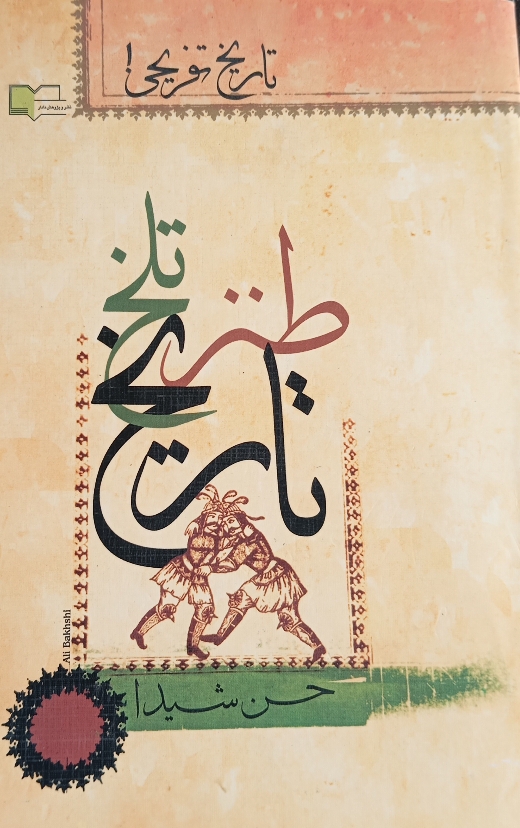 تاریخ تفریحی!
نشر و پژوهش دادار
طنز
تلخ
تاریخ
Ali Bakhshi
حسن شیدا